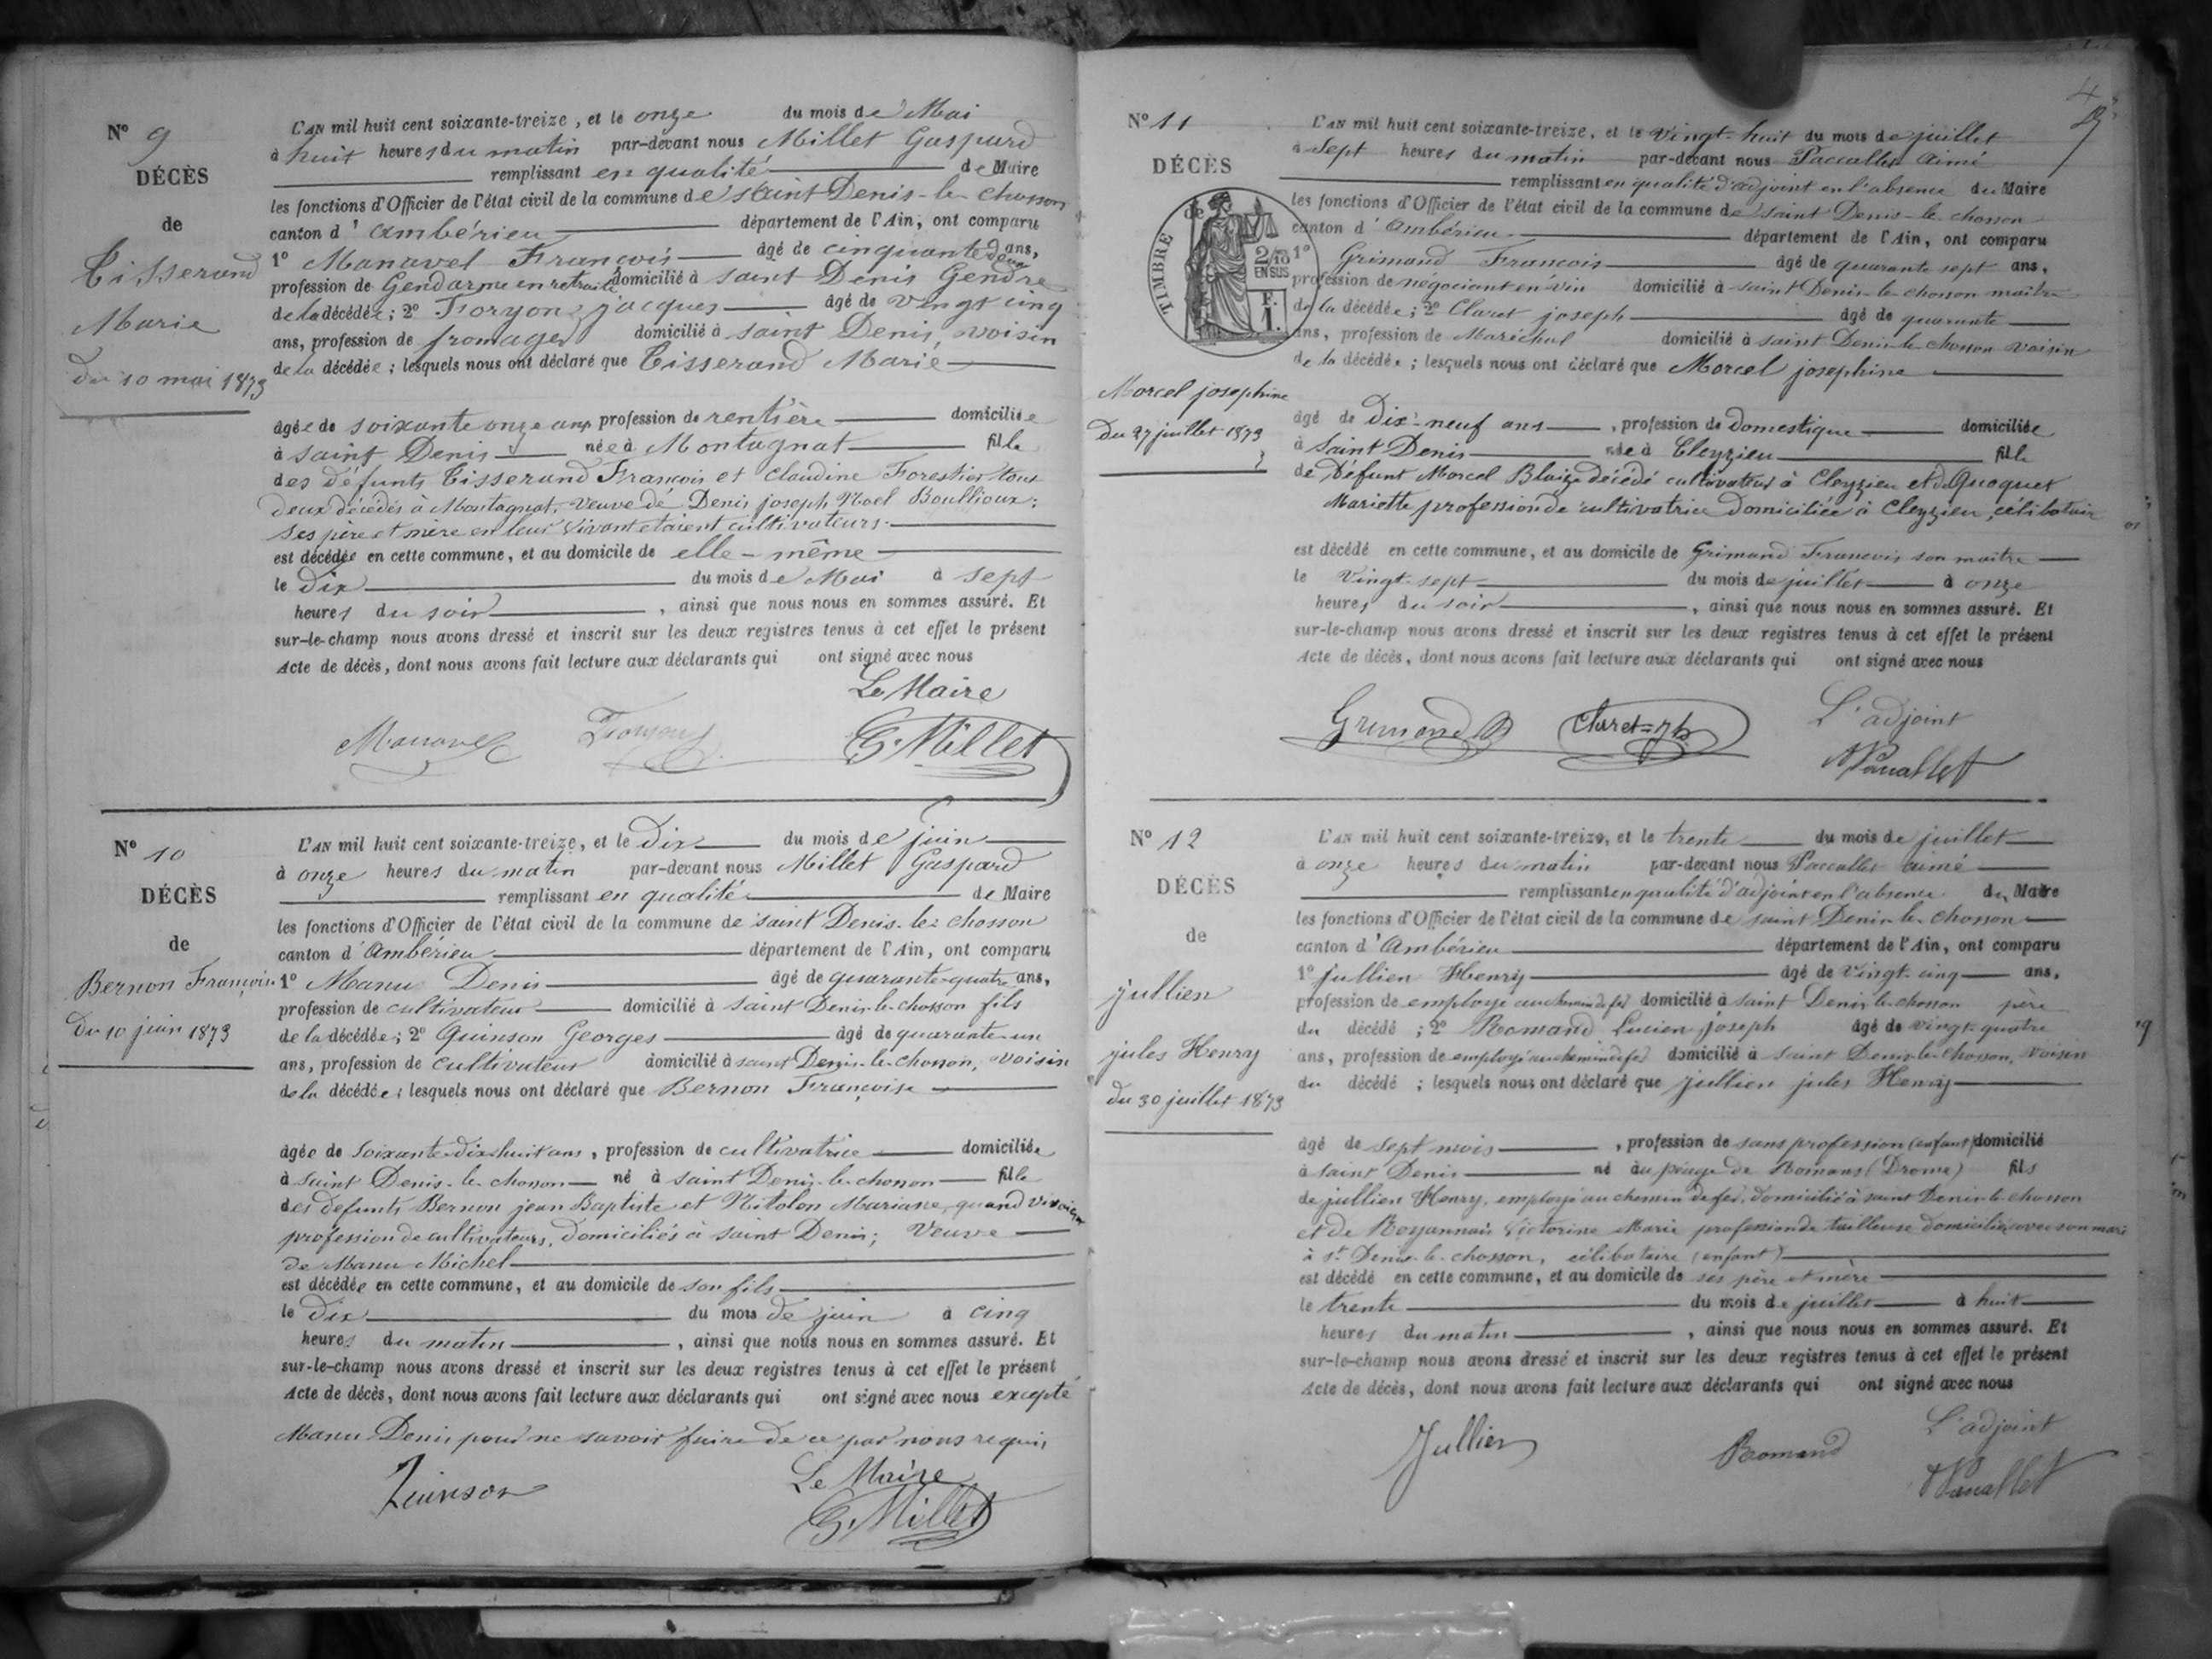 N° 9
DÉCÈS
de
Tisserand
Marie
du 10 mai 1873
L'AN mil huit cent soixante-treize, et le onze du mois de Mai
à huit heures du matin par-devant nous Millet Gaspard
remplissant en qualité de Maire
les fonctions d'Officier de l'état civil de la commune de saint Denis-le-chosson
canton d'ambérieu département de l'Ain, ont comparu
1° Manavel François âgé de cinquante deux ans,
profession de Gendarme en retraite domicilié à saint Denis Gendre
de la décédée ; 2° jacques âgé de vingt cinq
ans, profession de fromager domicilié à saint Denis, voisin
de la décédée ; lesquels nous ont déclaré que Tisserand Marie
âgée de soixante onze ans profession de rentière domiciliée
à saint Denis née à Montagnat fille
des défunts Tisserand François et Claudine Forestier tous
deux décédés à Montagnat, veuve de Denis joseph Noel Boullioux ;
ses père et mère en leur vivant etaient cultivateurs.
est décédée en cette commune, et au domicile de elle-même
le Dix du mois de Mai à sept
heures du soir, ainsi que nous nous en sommes assuré. Et
sur-le-champ nous avons dressé et inscrit sur les deux registres tenus à cet effet le présent
Acte de décès, dont nous avons fait lecture aux déclarants qui ont signé avec nous
Le Maire
Manavel G. Millet
N° 10
DÉCÈS
de
Bernon Françoise
du 10 juin 1873
L'AN mil huit cent soixante-treize, et le Dix du mois de juin
à onze heures du matin par-devant nous Millet Gaspard
remplissant en qualité de Maire
les fonctions d'Officier de l'état civil de la commune de saint Denis-le-chosson
canton d'ambérieu département de l'Ain, ont comparu
1° Manu Denis âgé de quarante-quatre ans,
profession de cultivateur domicilié à saint Denis-le-chosson fils
de la décédée ; 2° Quinson Georges âgé de quarante-un
ans, profession de cultivateur domicilié à saint Denis-le-chosson, voisin
de la décédée ; lesquels nous ont déclaré que Bernon Françoise
âgée de soixante-dix-huit ans, profession de cultivatrice domiciliée
à saint Denis-le-chosson né à saint Denis-le-chosson fille
des defunts Bernon jean Baptiste et Mariane, quand vivoient
profession de cultivateurs, domiciliés à saint Denis ; Veuve
de Manu Michel
est décédée en cette commune, et au domicile de son fils
le Dix du mois de juin à cinq
heures du matin, ainsi que nous nous en sommes assuré. Et
sur-le-champ nous avons dressé et inscrit sur les deux registres tenus à cet effet le présent
Acte de décès, dont nous avons fait lecture aux déclarants qui ont signé avec nous excepté
Manu Denis pour ne savoir faire de ce par nous requis
Quinson Le Maire
G. Millet
N° 11
DÉCÈS
TIMBRE
2/10
EN SUS
F.
1.
Morcel josephine
Du 27 juillet 1873
L'AN mil huit cent soixante-treize, et le vingt-huit du mois de juillet
à sept heures du matin par-devant nous Paccallet aimé
remplissant en qualité d'adjoint en l'absence du Maire
les fonctions d'Officier de l'état civil de la commune de saint Denis-le-chosson
canton d'ambérieu département de l'Ain, ont comparu
1° Grimand François âgé de quarante sept ans,
profession de négociant en vin domicilié à saint Denis-le-chosson maître
de la décédée ; 2° Claret joseph âgé de quarante
ans, profession de Maréchal domicilié à saint Denis-le-chosson voisin
de la décédée ; lesquels nous ont déclaré que Morcel josephine
âgé de Dix-neuf ans, profession de domestique domiciliée
à saint Denis née à Cleyzieu fille
de Défunt Morcel Blaize décédé cultivateur à Cleyzieu et de Quoquet
Mariette profession de cultivatrice domiciliée à Cleyzieu, célibataire
est décédé en cette commune, et au domicile de Grimand François son maître
le vingt-sept du mois de juillet à onze
heures du soir, ainsi que nous nous en sommes assuré. Et
sur-le-champ nous avons dressé et inscrit sur les deux registres tenus à cet effet le présent
Acte de décès, dont nous avons fait lecture aux déclarants qui ont signé avec nous
Grimand Claret L'adjoint
Paccallet
N° 12
DÉCÈS
de
jullien
jules Henry
du 30 juillet 1873
L'AN mil huit cent soixante-treize, et le trente du mois de juillet
à onze heures du matin par-devant nous Paccallet aimé
remplissant en qualité d'adjoint en l'absence du Maire
les fonctions d'Officier de l'état civil de la commune de saint Denis-le-chosson
canton d'Ambérieu département de l'Ain, ont comparu
1° jullien Henry âgé de vingt-cinq ans,
profession de employé au chemin de fer domicilié à saint Denis-le-chosson père
du décédé ; 2° Romand Lucien joseph âgé de vingt-quatre
ans, profession de employé au chemin de fer domicilié à saint Denis-le-chosson, voisin
du décédé ; lesquels nous ont déclaré que jullien jules Henry
âgé de sept mois, profession de sans profession (enfant) domicilié
à saint Denis né au péage de Romans (Drome) fils
de jullien Henry, employé au chemin de fer, domicilié à saint Denis-le-chosson
et de Victorine Marie profession de tailleuse domiciliée avec son mari
à st Denis-le-chosson, célibataire (enfant)
est décédé en cette commune, et au domicile de ses père et mère
le trente du mois de juillet à huit
heures du matin, ainsi que nous nous en sommes assuré. Et
sur-le-champ nous avons dressé et inscrit sur les deux registres tenus à cet effet le présent
Acte de décès, dont nous avons fait lecture aux déclarants qui ont signé avec nous
Jullien Romand L'adjoint
Paccallet